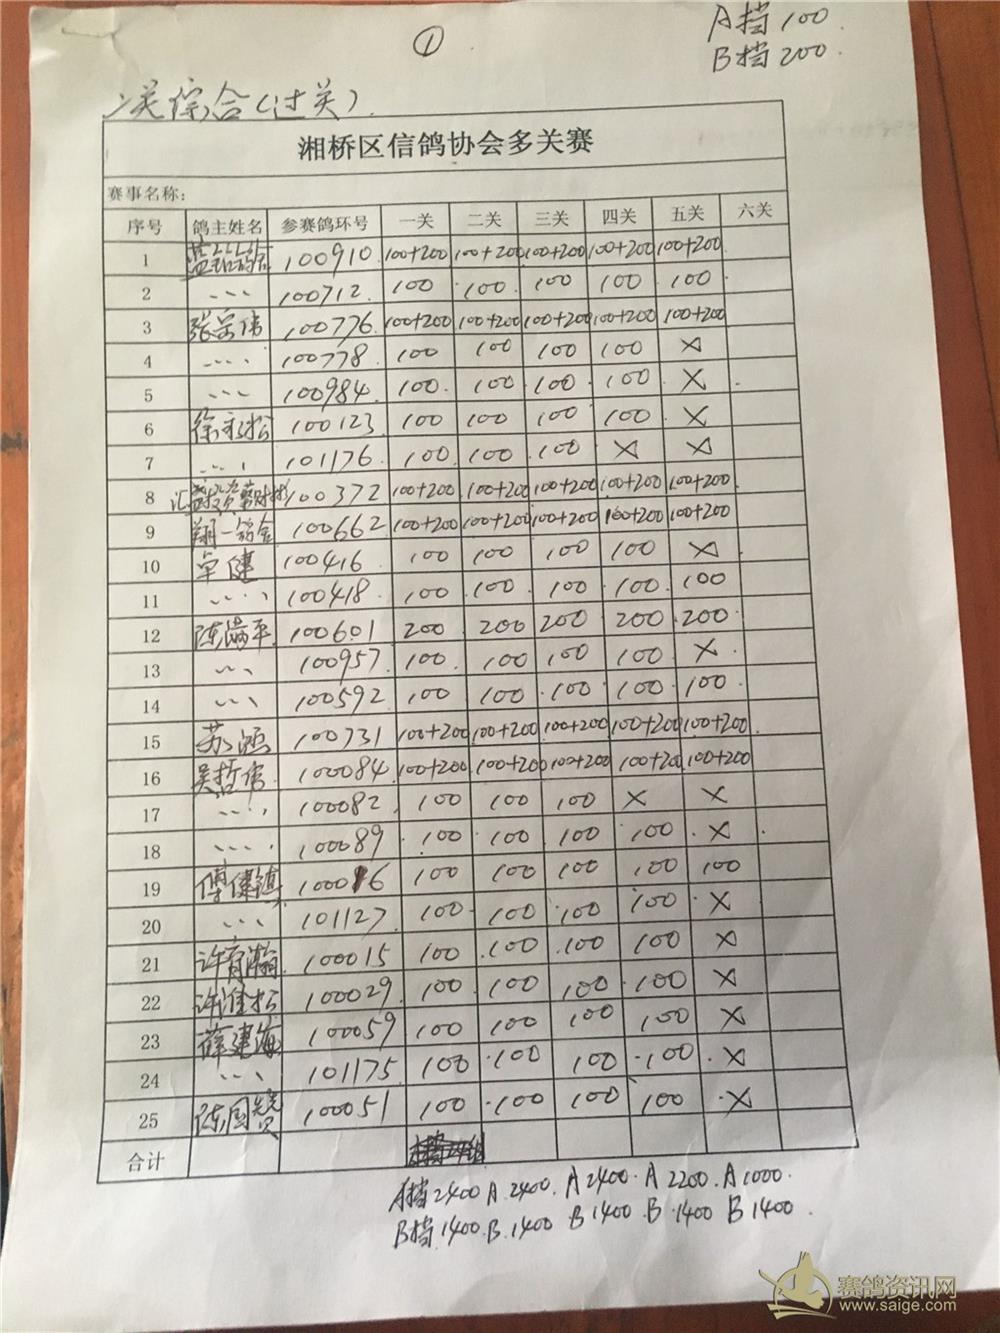 ①
A挡 100
B挡 200
二关综合(过关)
湘桥区信鸽协会多关赛
赛事名称:
序号 鸽主姓名 参赛鸽环号 一关 二关 三关 四关 五关 六关
1 100910 100+200 100+200 100+200 100+200 100+200
2 〃 100712 100 100 100 100 100
3 张宗伟 100776 100+200 100+200 100+200 100+200 100+200
4 〃 100778 100 100 100 100 ×
5 〃 100984 100 100 100 100 ×
6 徐永松 100123 100 100 100 100 ×
7 〃 101176 100 100 100 × ×
8 100372 100+200 100+200 100+200 100+200 100+200
9 翔一鸽舍 100662 100+200 100+200 100+200 100+200 100+200
10 卓健 100416 100 100 100 100 ×
11 〃 100418 100 100 100 100 100
12 陈满平 100601 200 200 200 200 200
13 〃 100957 100 100 100 100 ×
14 〃 100592 100 100 100 100 100
15 苏 100731 100+200 100+200 100+200 100+200 100+200
16 吴哲伟 100084 100+200 100+200 100+200 100+200 100+200
17 〃 100082 100 100 100 × ×
18 〃 100089 100 100 100 100 ×
19 傅健镇 100016 100 100 100 100 100
20 〃 101127 100 100 100 100 ×
21 许育瀚 100015 100 100 100 100 ×
22 许淮松 100029 100 100 100 100 ×
23 薛建海 100059 100 100 100 100 ×
24 〃 101175 100 100 100 100 ×
25 陈国贤 100051 100 100 100 100 ×
合计
A挡2400 A 2400 A 2400 A 2200 A 1000
B挡1400 B 1400 B 1400 B 1400 B 1400
赛鸽资讯网
www.saige.com